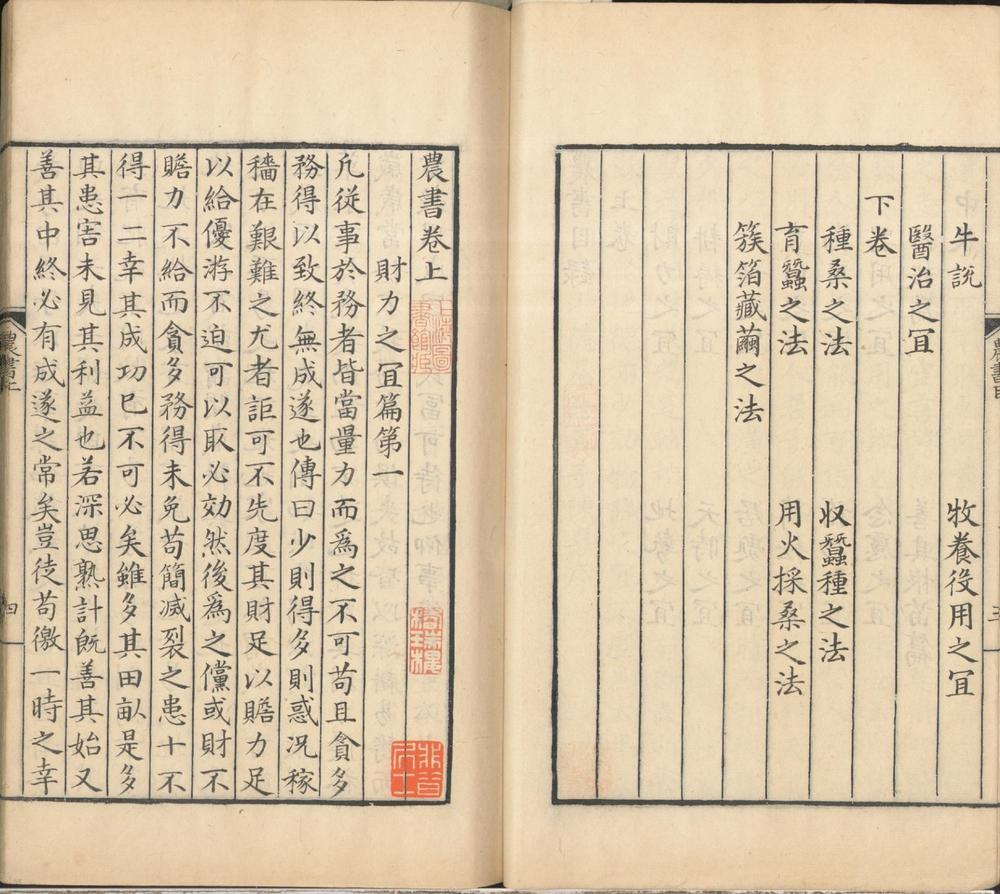 牛說 牧養役用之宜
醫治之宜
下卷
種桑之法 收蠶種之法
育蠶之法 用火採桑之法
簇箔藏繭之法
農書卷上
財力之宜篇第一
凡從事於務者皆當量力而爲之不可苟且貪多
務得以致終無成遂也傳曰少則得多則惑況稼
穡在艱難之尤者詎可不先度其財足以贍力足
以給優游不迫可以取必効然後爲之儻或財不
贍力不給而貪多務得未免苟簡滅裂之患十不
得一二幸其成功已不可必矣雖多其田畝是多
其患害未見其利益也若深思熟計旣善其始又
善其中終必有成遂之常矣豈徒苟徼一時之幸
農書上
四